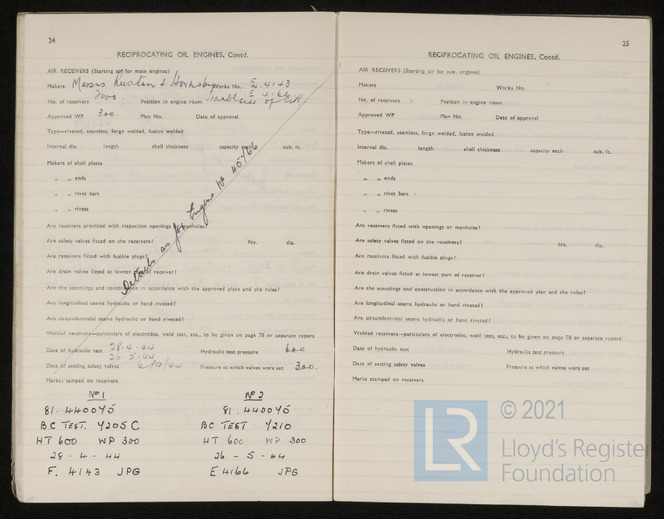 24
RECIPROCATING OIL ENGINES, Contd.
AIR RECEIVERS (Starting air for main engines)
Makers Messrs Ruston & Hornsby Works No. E. 4143
E 4166
No. of receivers Two. Position in engine room
Approved WP 300. Plan No. Date of approval
Type—riveted, seamless, forge welded, fusion welded
Internal dia. length shell thickness capacity each cub. ft.
Makers of shell plates
„ „ ends
„ „ rivet bars
„ „ rivets
Details as for Engine No 45466
Are receivers provided with inspection openings or manholes?
Are safety valves fitted on the receivers? No. dia.
Are receivers fitted with fusible plugs?
Are drain valves fitted at lowest part of receiver?
Are the scantlings and construction in accordance with the approved plans and the rules?
Are longitudinal seams hydraulic or hand riveted?
Are circumferential seams hydraulic or hand riveted?
Welded receivers—particulars of electrodes, weld test, etc., to be given on page 78 or separate report
Date of hydraulic test 28-4-44 Hydraulic test pressure 600
26-5-44
Date of setting safety valves 6/9/44 Pressure at which valves were set 300.
Marks stamped on receivers
No 1
81-440045
BC TEST. 4205 C
HT 600 WP 300
28-4-44
F. 4143 JPG
No 2
81.440045
BC TEST 4210
HT 600 WP 300
26-5-44
E 4166 JPG
25
RECIPROCATING OIL ENGINES, Contd.
AIR RECEIVERS (Starting air for aux. engines)
Makers Works No.
No. of receivers Position in engine room
Approved WP Plan No. Date of approval
Type—riveted, seamless, forge welded, fusion welded
Internal dia. length shell thickness capacity each cub. ft.
Makers of shell plates
„ „ ends
„ „ rivet bars
„ „ rivets
Are receivers fitted with openings or manholes?
Are safety valves fitted on the receivers? No. dia.
Are receivers fitted with fusible plugs?
Are drain valves fitted at lowest part of receiver?
Are the scantlings and construction in accordance with the approved plan and the rules?
Are longitudinal seams hydraulic or hand riveted?
Are circumferential seams hydraulic or hand riveted?
Welded receivers—particulars of electrodes, weld test, etc., to be given on page 78 or separate report
Date of hydraulic test Hydraulic test pressure
Date of setting safety valves Pressure at which valves were set
Marks stamped on receivers
LR
© 2021
Lloyd's Register
Foundation